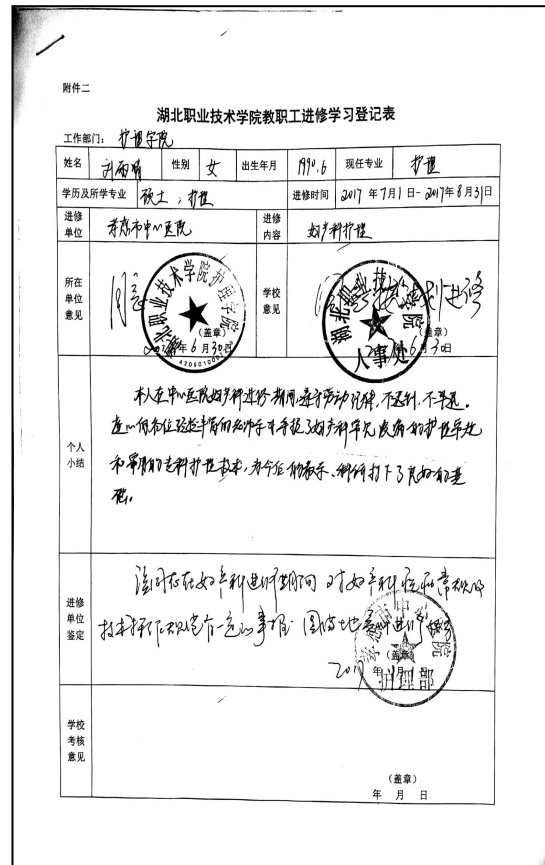 附件二
湖北职业技术学院教职工进修学习登记表
工作部门：护理学院
姓名 刘雨晴 性别 女 出生年月 1990.6 现任专业 护理
学历及所学专业 硕士，护理 进修时间 2017年7月1日-2017年8月31日
进修单位 孝感市中心医院 进修内容 妇产科护理
所在单位意见 同意 湖北职业技术学院护理学院 （盖章） 年6月30日
学校意见 湖北职业技术学院 人事处 （盖章） 6月30日
个人小结
本人在中心医院妇产科进修期间，遵守劳动纪律，不迟到、不早退。
虚心向各位经验丰富的老师学习并掌握了妇产科常见疾病的护理常规
和常用的专科护理技术，为今后的教学、科研打下了良好的基
础。
进修单位鉴定
该同志在妇产科进修期间 对妇产科 常规及
技术操作规范有一定的掌握 圆满地完成进修
孝感市中心医院 护理部 （盖章） 2017年 月 日
学校考核意见
（盖章）
年 月 日